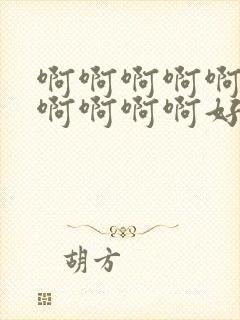 啊啊啊啊啊
啊啊啊啊好
胡方